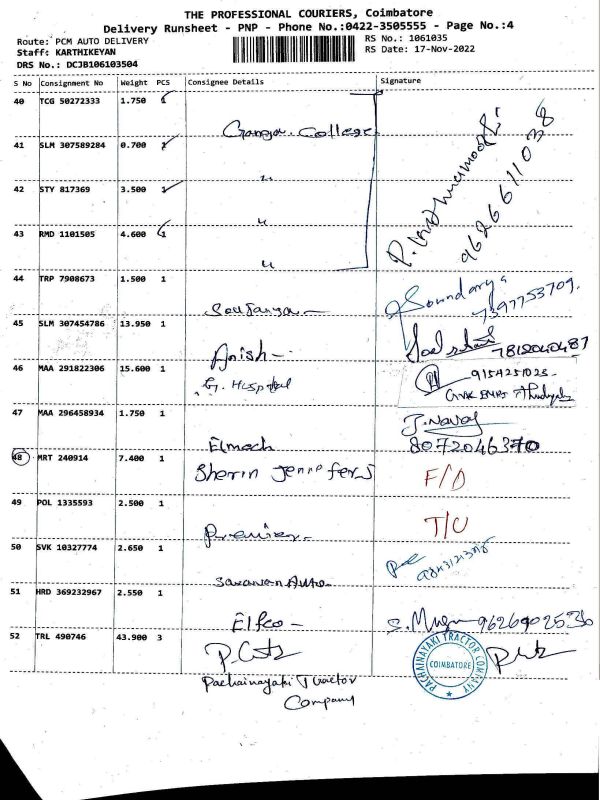 THE PROFESSIONAL COURIERS, Coimbatore
Delivery Runsheet - PNP - Phone No.:0422-3505555 - Page No.:4
Route: PCM AUTO DELIVERY RS No.: 1061035
Staff: KARTHIKEYAN RS Date: 17-Nov-2022
DRS No.: DCJB106103504
S No Consignment No Weight PCS Consignee Details Signature
40 TCG 50272333 1.750 1
Ganga College
41 SLM 307589284 0.700 1
"
42 STY 817369 3.500 1
"
43 RMD 1101505 4.600 1
"
9626611038
44 TRP 7908673 1.500 1
Soundarya
7397753709.
45 SLM 307454786 13.950 1
Anish - 7812040487
46 MAA 291822306 15.600 1
G. Hospital 9154251025
47 MAA 296458934 1.750 1
J. Navas
Elmech 8072046370
48 MRT 240914 7.400 1
Sherin Jennifer J F/D
49 POL 1335593 2.500 1
T/U
Premier
50 SVK 10327774 2.650 1
Saravan Auto
51 HRD 369232967 2.550 1
Elfco - 9626902536
52 TRL 490746 43.900 3
PACHAINAYAKI TRACTOR COMPANY
COIMBATORE
Pachainayaki Tractor
Company